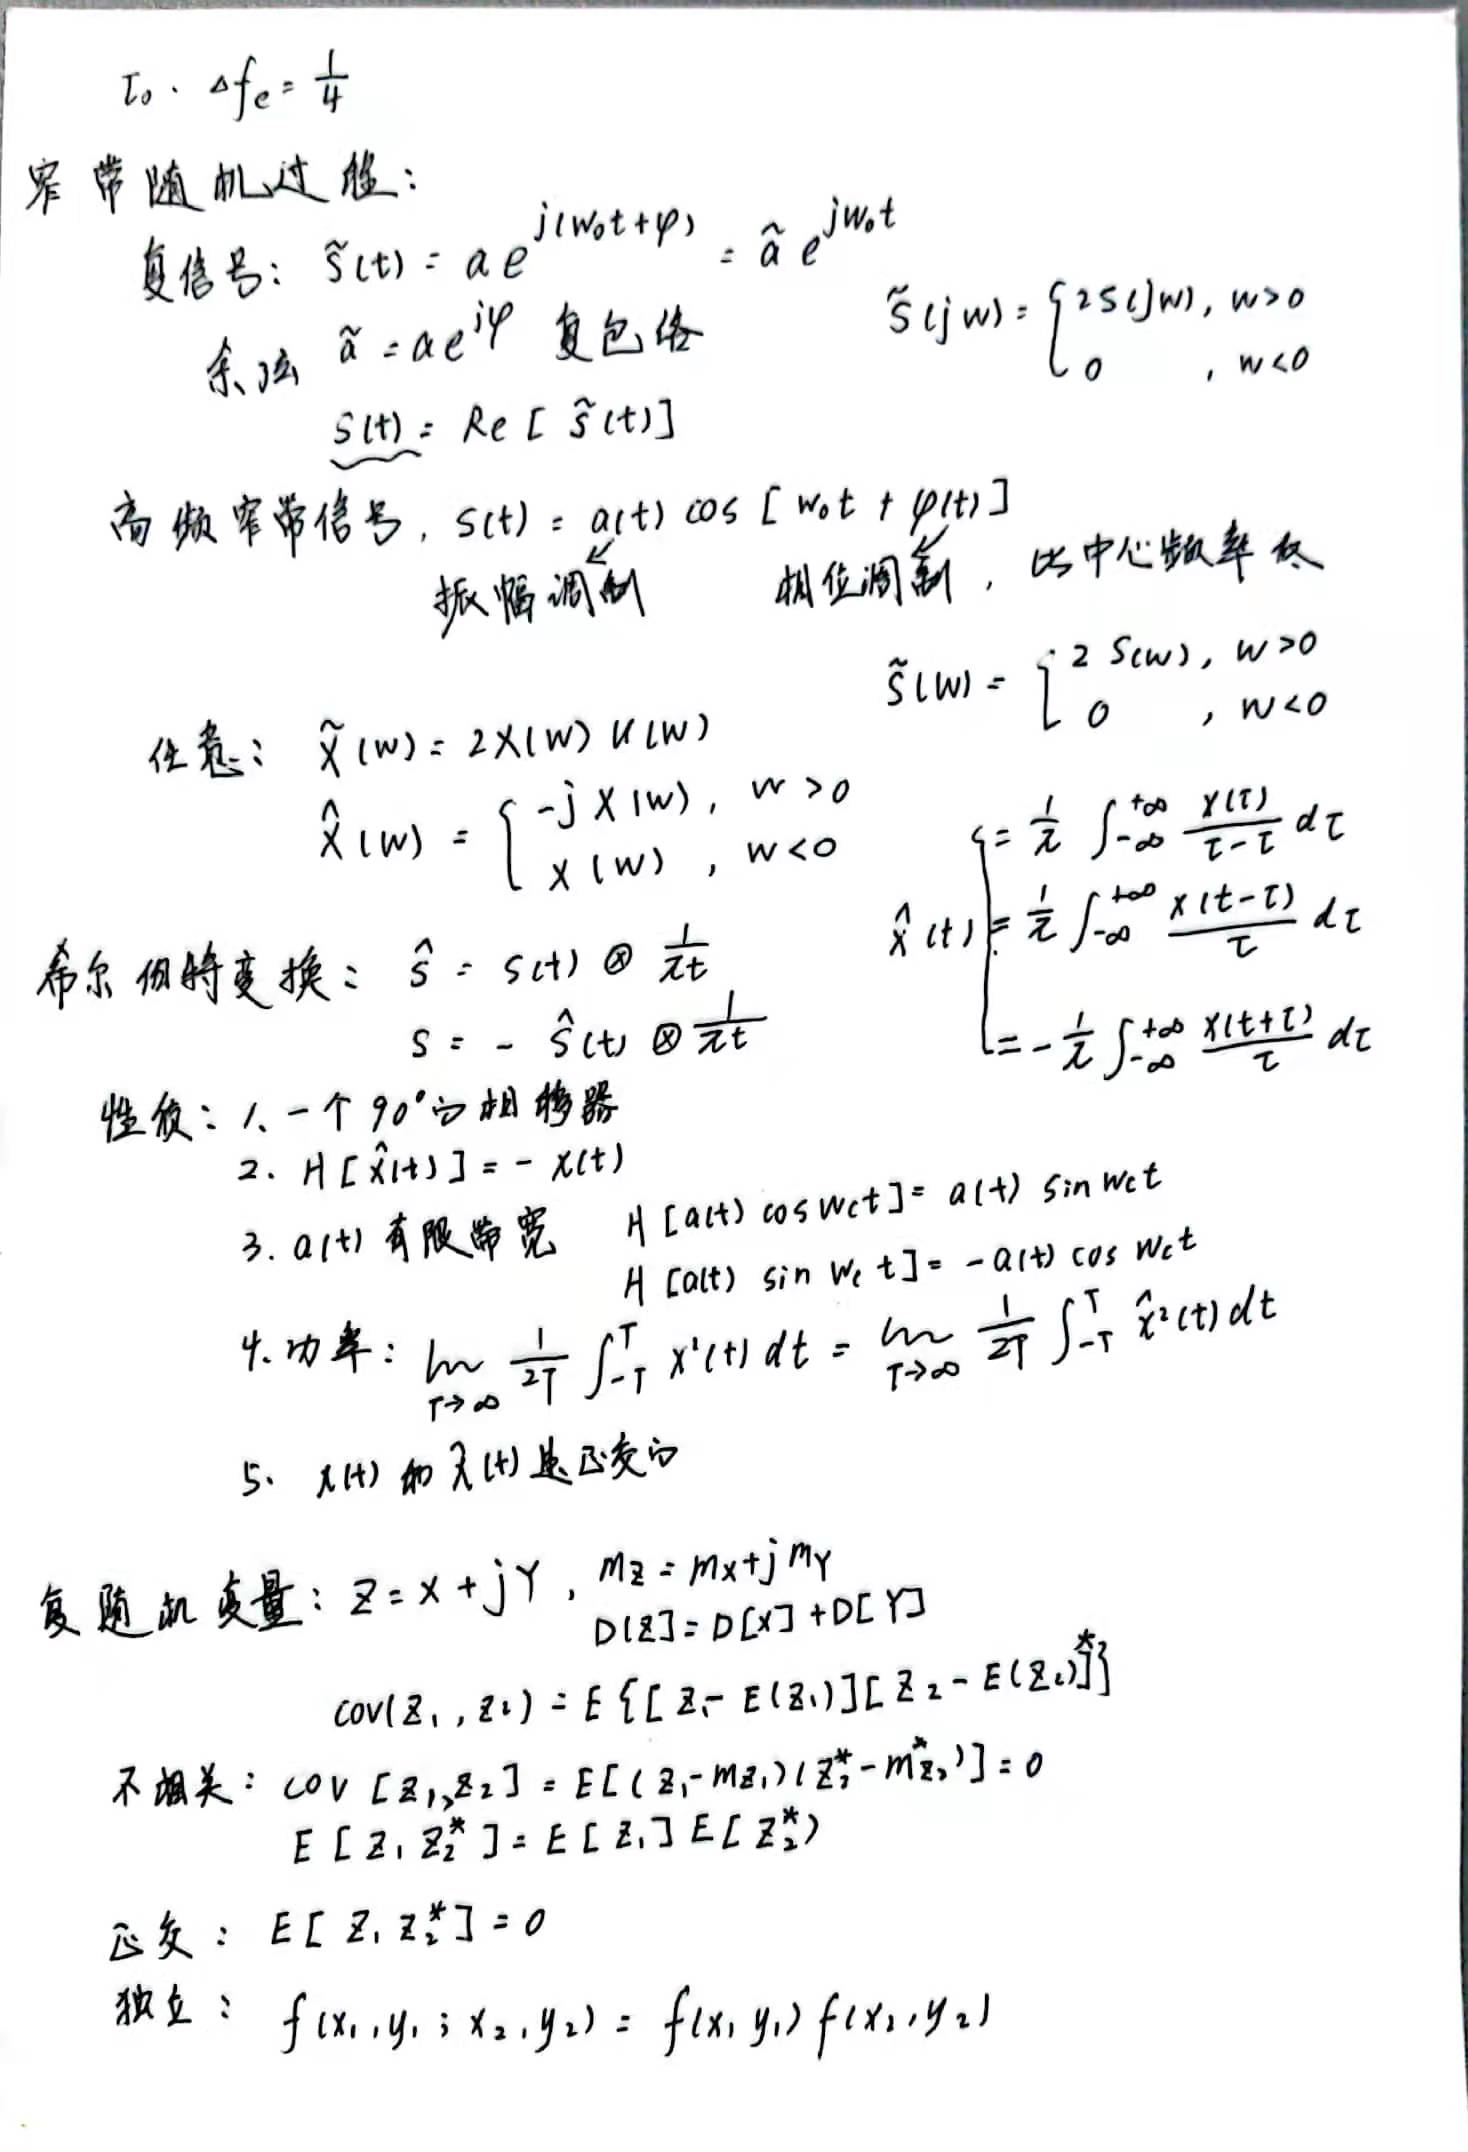 τ₀ · Δfe = 1/4
窄带随机过程:
复信号: s̃(t) = a e^{j(w₀t+φ)} = ã e^{jw₀t}
余弦 ã = a e^{jφ} 复包络
s̃(jw) = { 2S(jw), w>0
0 , w<0
s(t) = Re [ s̃(t)]
高频窄带信号, s(t) = a(t) cos [ w₀t + φ(t)]
振幅调制 相位调制, 比中心频率
s̃(w) = { 2 S(w), w>0
0 , w<0
任意: x̃(w) = 2X(w) U(w)
x̂(w) = { -j X(w), w>0
x(w) , w<0
x̂(t) { = 1/π ∫_{-∞}^{+∞} x(τ)/(τ-τ) dτ
= 1/π ∫_{-∞}^{+∞} x(t-τ)/τ dτ
= -1/π ∫_{-∞}^{+∞} x(t+τ)/τ dτ
希尔伯特变换: ŝ = s(t) ⊗ 1/πt
s = - ŝ(t) ⊗ 1/πt
性质: 1. 一个90°的相移器
2. H [x̂(t)] = - x(t)
3. a(t) 有限带宽 H [a(t) cos wct] = a(t) sin wct
H [a(t) sin wc t] = -a(t) cos wct
4. 功率: lim_{T→∞} 1/2T ∫_{-T}^{T} x²(t) dt = lim_{T→∞} 1/2T ∫_{-T}^{T} x̂²(t) dt
5. x(t) 和 x̂(t) 是正交的
复随机变量: Z = X + jY, mz = mx + j mY
D[Z] = D[X] + D[Y]
cov(z₁, z₂) = E {[ z₁ - E(z₁)][ z₂ - E(z₂)]*}
不相关: cov [z₁, z₂] = E[( z₁ - mz₁)(z₂* - m*z₂)] = 0
E [ z₁ z₂* ] = E [ z₁] E [ z₂*)
正交: E [ z₁ z₂* ] = 0
独立: f(x₁, y₁ ; x₂, y₂) = f(x₁ y₁) f(x₂, y₂)